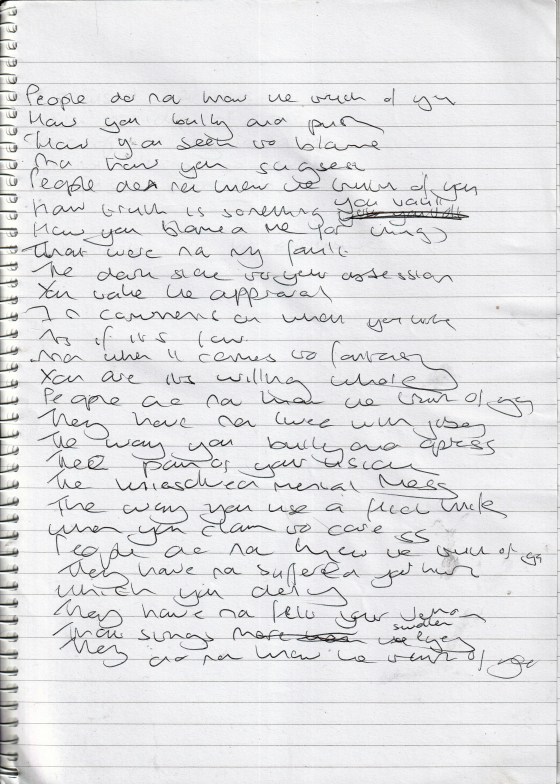 People do not know the truth of you
How you bully and push
How you seek to blame
And how you suggest
People do not know the truth of you
How truth is something you
How you blamed me for things
That were not my fault
The dark side to your obsession
You take the approval
In comments on what you write
As if it is law
And when it comes to fantasy
You are its willing whore
People do not know the truth of you
They have not lived with
The way you bully and oppress
The pain of your vision
The unresolved mental mess
The way you use a
When you claim to care
People do not know the truth of you
They have not suffered your
Which you deny
They have not felt your venom
That stings swollen
They do not know the truth of you